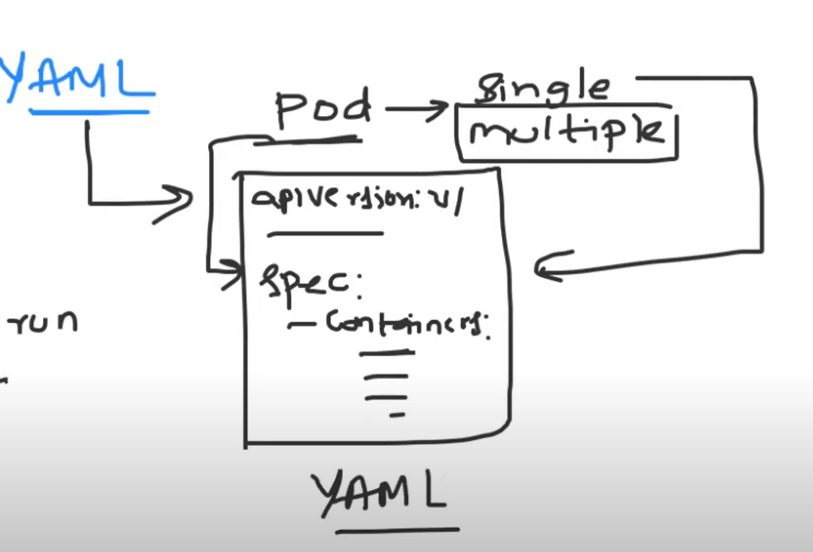 YAML
Pod → single
multiple
apiVersion: v1
spec:
- Containers:
run
YAML